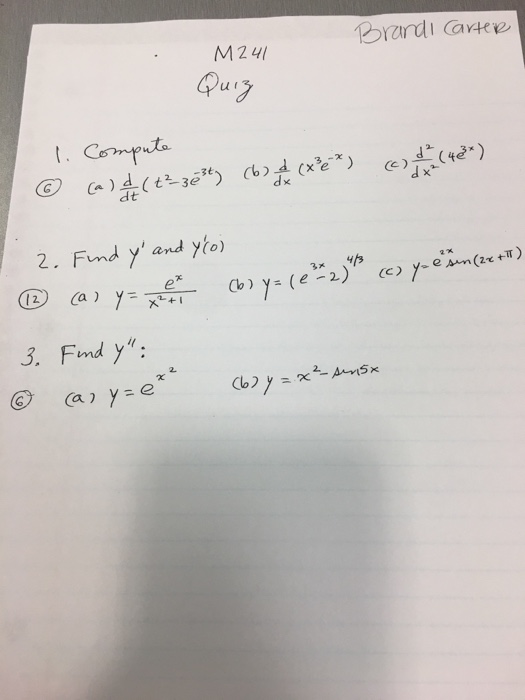 Brandi Carter
M241
Quiz
1. Compute
⑥ (a) d/dt (t² - 3e⁻³ᵗ) (b) d/dx (x³e⁻ˣ) (c) d²/dx² (4e³ˣ)
2. Find y' and y'(0)
⑫ (a) y = eˣ/(x²+1) (b) y = (e³ˣ - 2)^4/3 (c) y = e²ˣ sin(2x + π)
3. Find y'':
⑥ (a) y = e^x² (b) y = x² - sin5x